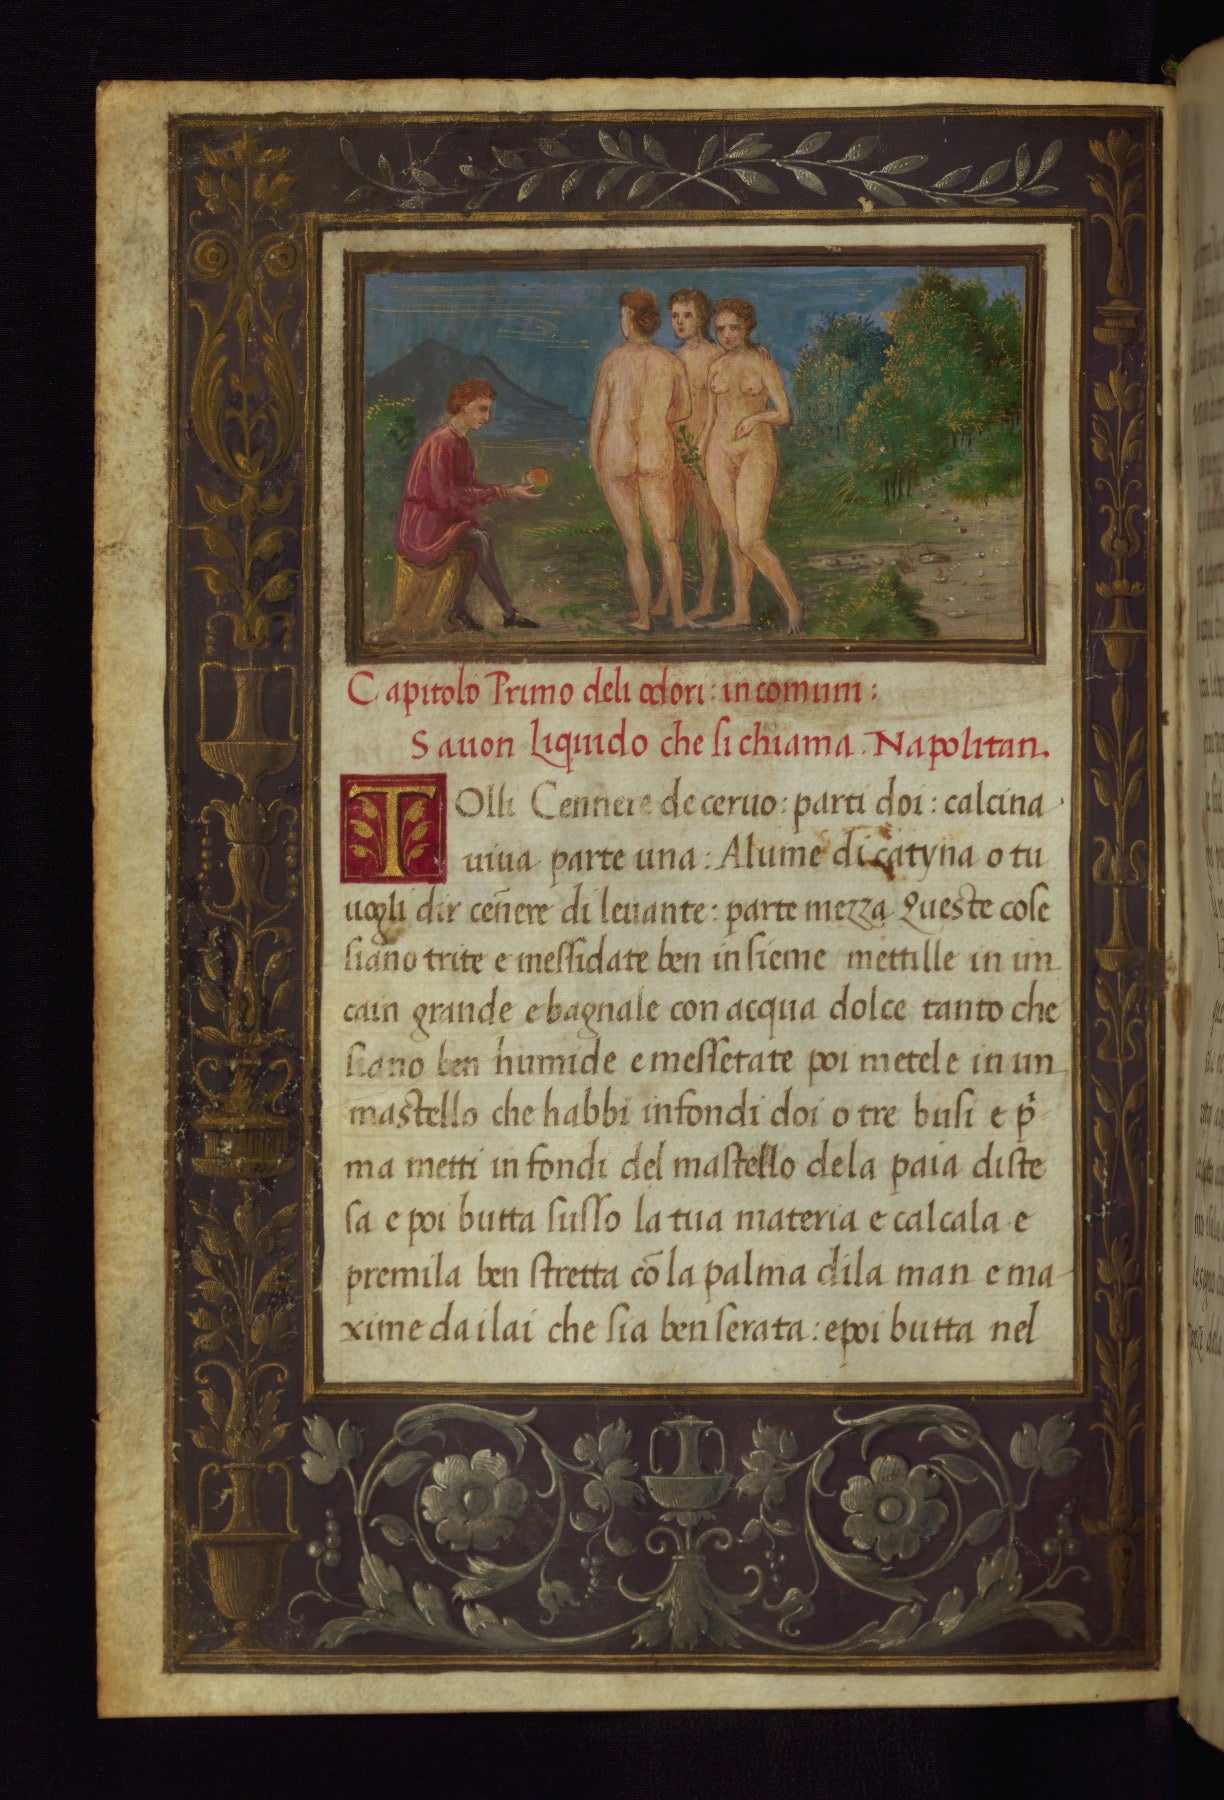 Capitolo Primo deli odori : in comuni :
Sauon Liquido che si chiama . Napolitan.
TOlli Cennere de ceruo : parti doi : calcina
uiua parte una : Alume di catyna o tu
uogli dir cen̄ere di leuante : parte mezza Queste cose
siano trite e messidate ben insieme mettille in un
cain grande e bagnale con acqua dolce tanto che
siano ben humide e messetate poi metele in un
mastello che habbi infondi doi o tre busi e p̄ri-
ma metti in fondi del mastello dela paia diste
sa e poi butta susso la tua materia e calcala e
premila ben stretta cō la palma dila man e ma-
xime dai lai che sia ben serata : e poi butta nel